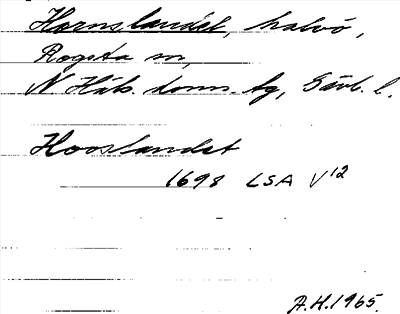 Hornslandet, halvö,
Rogsta sn,
N Häls. doms. tg, Gävl. l.
Hooslandet
1698 LSA V12
A.H. 1965.